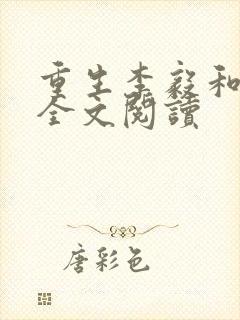 重生李毅和
全文閱讀
唐彩色